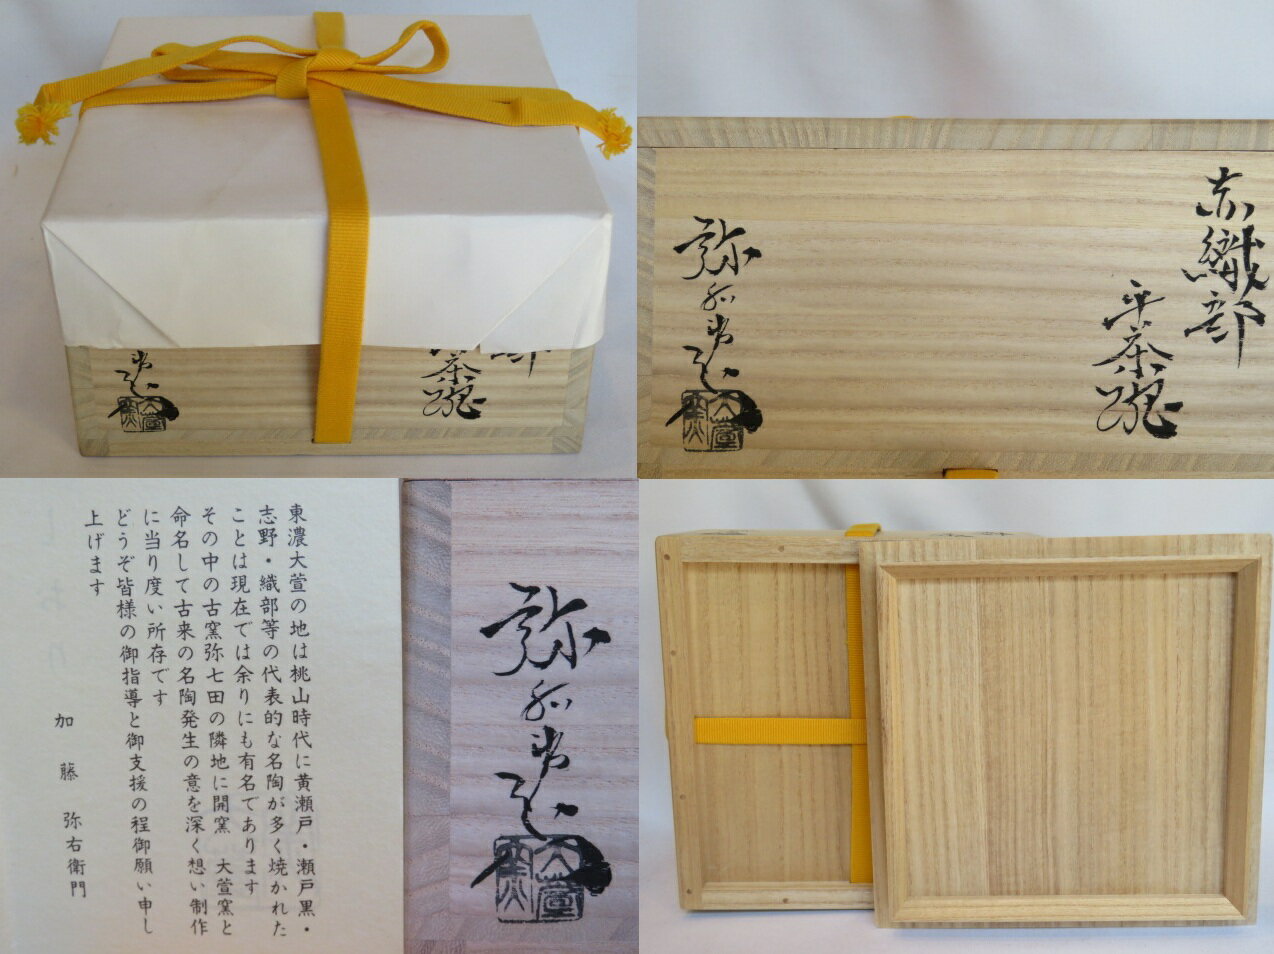 赤織部
平茶碗
弥右衛門
大萱窯
東濃大萱の地は桃山時代に黄瀬戸・瀬戸黒・
志野・織部等の代表的な名陶が多く焼かれた
ことは現在では余りにも有名であります
その中の古窯弥七田の隣地に開窯　大萱窯と
命名して古来の名陶発生の意を深く想い制作
に当り度い所存です
どうぞ皆様の御指導と御支援の程御願い申し
上げます
加藤弥右衛門
弥右衛門
大萱窯